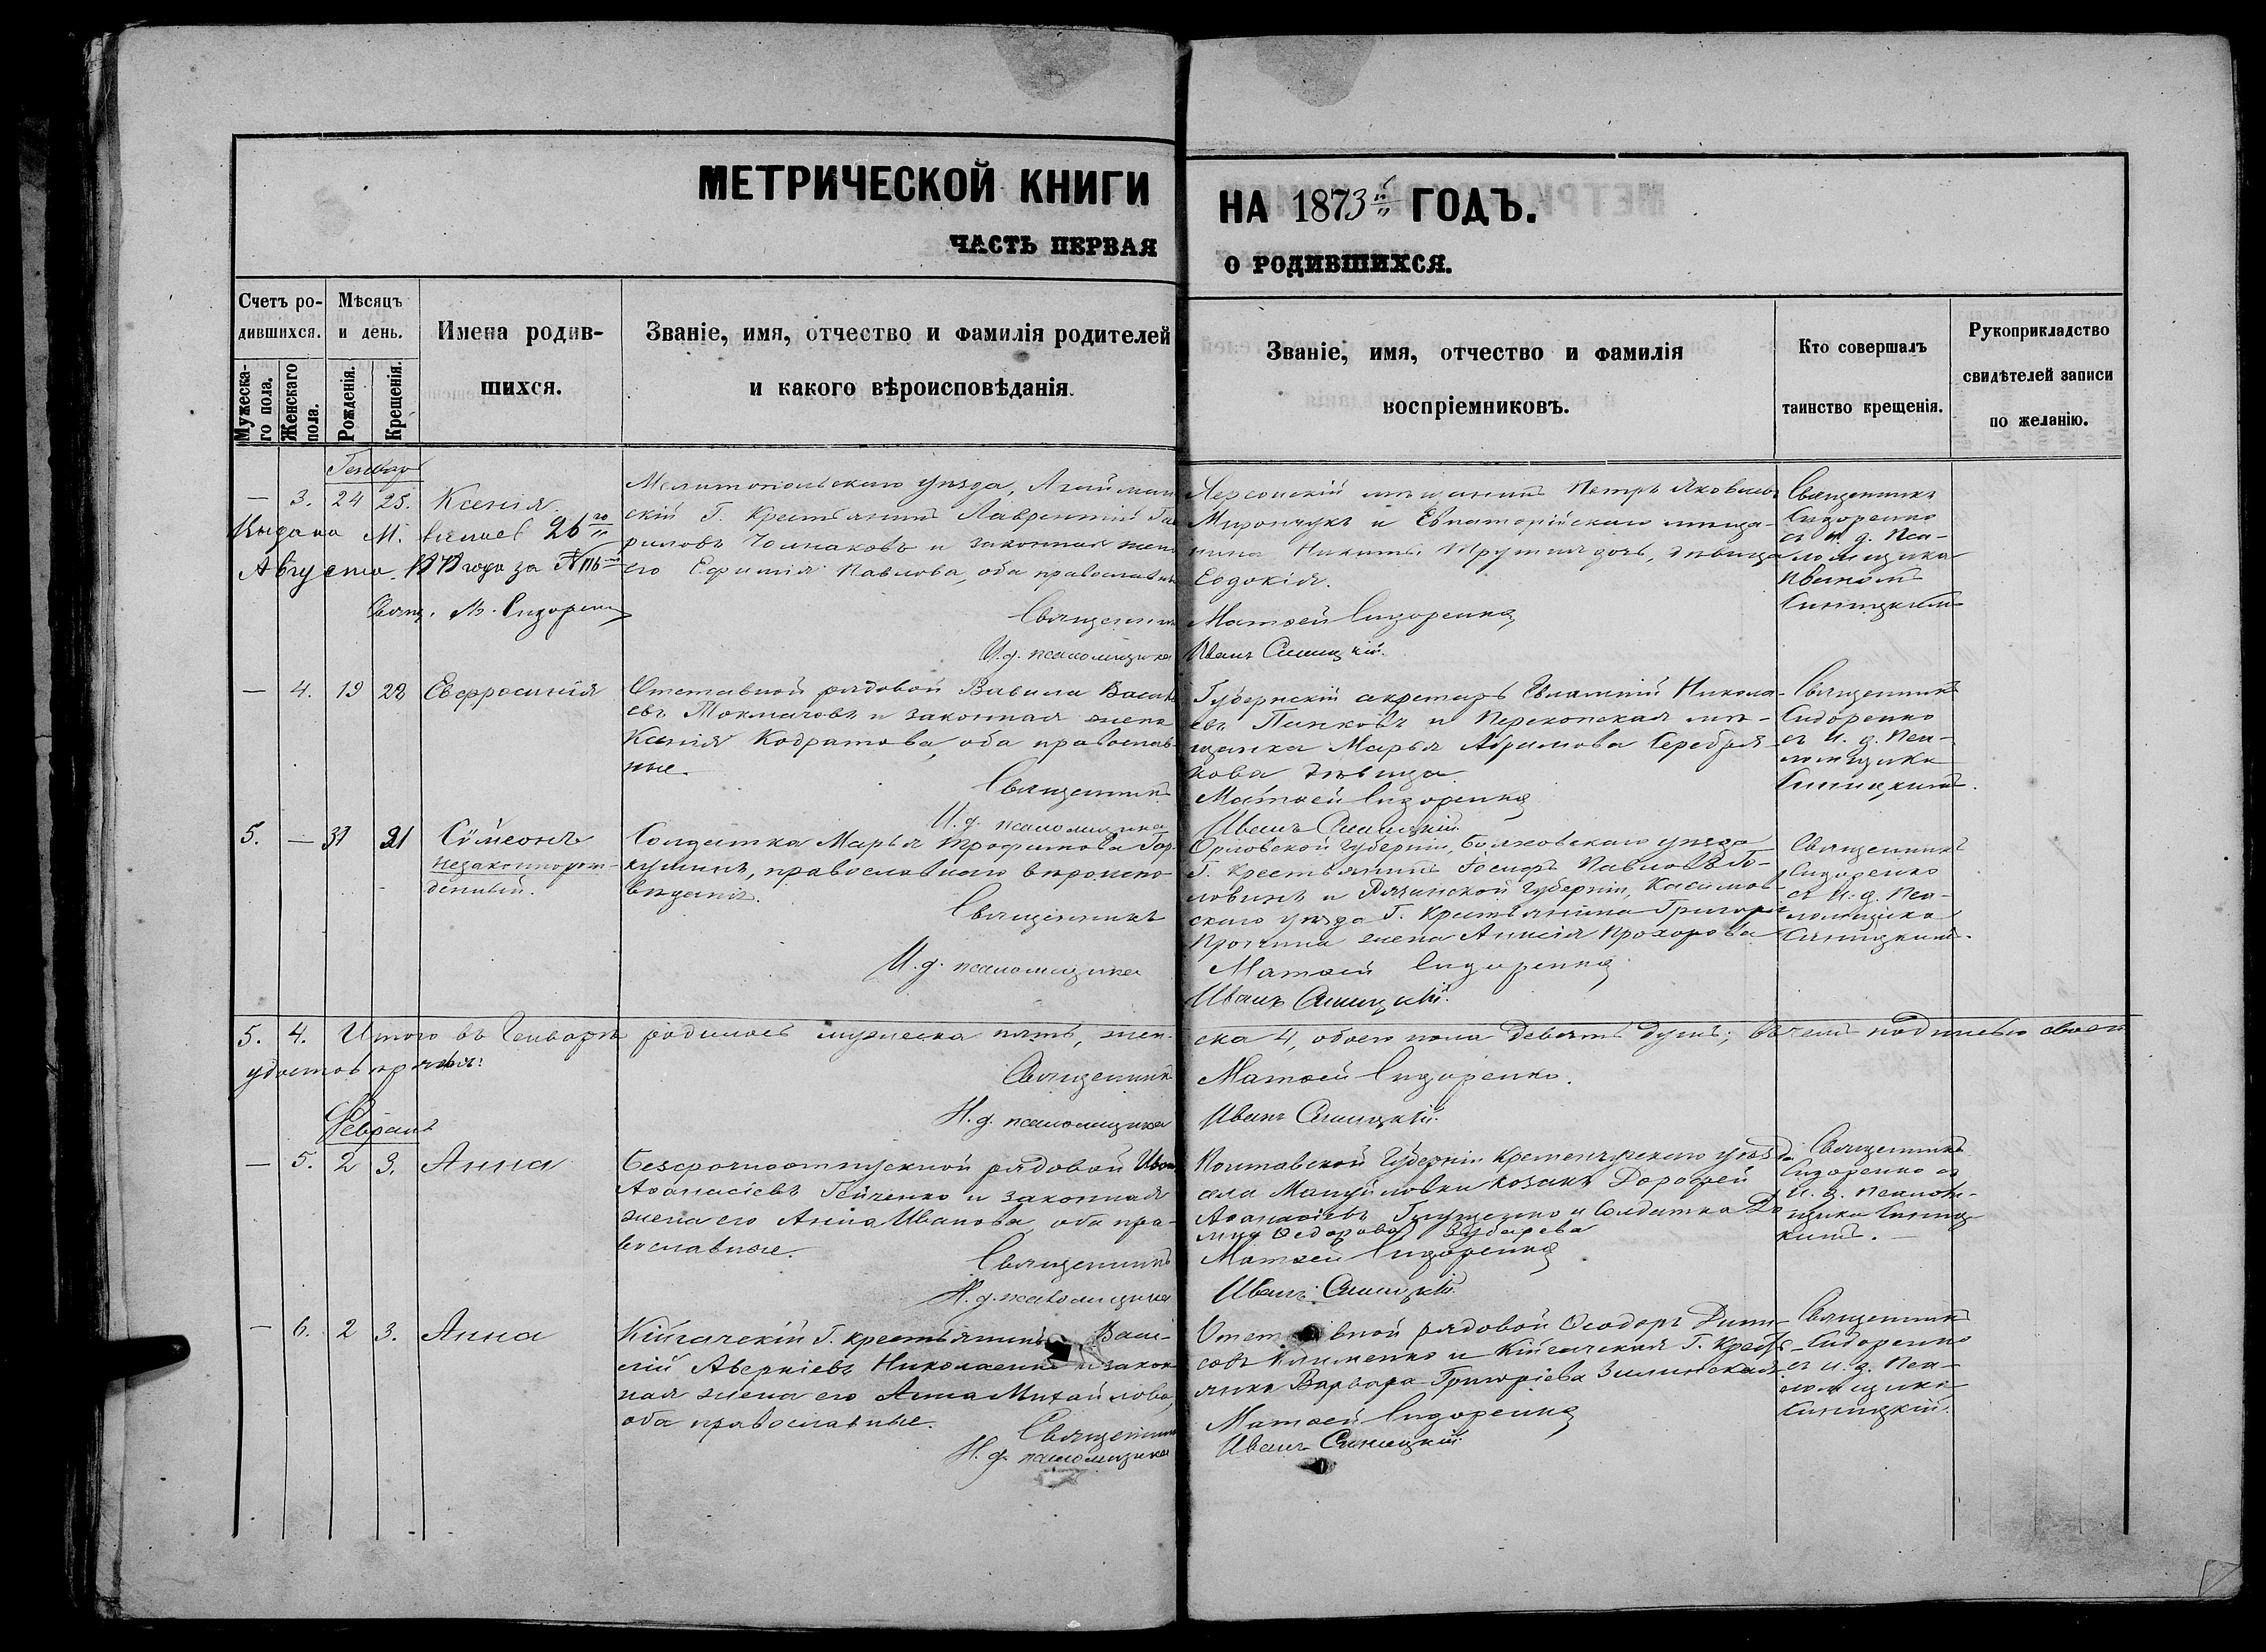 МЕТРИЧЕСКОЙ КНИГИ
ЧАСТЬ ПЕРВАЯ
НА 1873й ГОДЪ.
О РОДИВШИХСЯ.
Счетъ ро-
дившихся.
Мужеска-
го пола.
Женскаго
пола.
Мѣсяцъ
и день.
Рожденія.
Крещенія.
Имена родив-
шихся.
Званіе, имя, отчество и фамилія родителей
и какого вѣроисповѣданія.
Званіе, имя, отчество и фамилія
воспріемниковъ.
Кто совершалъ
таинство крещенія.
Рукоприкладство
свидѣтелей записи
по желанію.
— 3. 24 25. Ксенія.
Выдана М. 26го
Августа года за №
Свящ. М. Сидоренко
Мелитопольскаго уѣзда,
скій Г. Крестьянинъ Лаврентій Га
риловъ и законная жена
его Ефимія Павлова, оба православные
Священникъ
И. д. псаломщика
Херсонскій мѣщанинъ Петръ Яковлевъ
Мирончукъ и Евпаторійскаго мѣща-
нина Никиты дочь, дѣвица
Евдокія.
Матѳей Сидоренко
Иванъ Синицкій.
Священникъ
Сидоренко
съ и. д. Пса-
ломщика
Иваномъ
Синицкимъ
— 4. 19 28 Евфросинія
Отставной рядовой Вавила Василь
евъ Токмачовъ и законная жена
Ксенія Кодратова, оба православ-
ные.
Священникъ
И. д. псаломщика
Губернскій секретарь Евлампій Никола-
евъ Панковъ и Перекопская мѣ-
щанка Марья Абрамова Серебря-
кова дѣвица
Матѳей Сидоренко
Иванъ Синицкій.
Священникъ
Сидоренко
съ И. д. Пса-
ломщика
Синицкимъ.
5. — 31 31 Сѵмеонъ
незаконнорож-
денный.
Солдатка Марья Трофимова Гор-
кушинъ, православнаго вѣроиспо-
вѣданія.
Священникъ
И. д. псаломщика
Орловской Губерніи, Болховскаго уѣзда
Г. Крестьянинъ Іосифъ Павловъ Го-
ловинъ и Рязанской Губерніи, Касимов-
скаго уѣзда Г. Крестьянина Григорія
жена Анисія Прохорова
Матѳей Сидоренко
Иванъ Синицкій.
Священникъ
Сидоренко
съ И. д. Пса-
ломщика
Синицкимъ.
5. 4. Итого въ Генварѣ родилось мужеска пять, жен-
ска 4, обоего пола девять душъ; въ чемъ подписью своею
удостовѣряемъ:
Священникъ Матѳей Сидоренко.
И. д. псаломщика Иванъ Синицкій.
— 5. 2 3. Анна
Безсрочноотпускной рядовой Иванъ
Аѳанасіевъ Гейченко и законная
жена его Анна Иванова, оба пра-
вославные.
Священникъ
И. д. псаломщика
Полтавской Губерніи Кременчугскаго уѣзда
села Мануйловки козакъ Дорофей
Аѳанасіевъ и Солдатка До
мна Ѳедорова Зубарева
Матѳей Сидоренко
Иванъ Синицкій.
Священникъ
Сидоренко съ
И. д. псалом-
щика Синиц
кимъ.
— 6. 2 3. Анна
Г. крестьянинъ Васи-
лій Аверкіевъ Николаенко и закон-
ная жена его Анна Михайлова,
оба православные.
Священникъ
И. д. псаломщика
Отставной рядовой Ѳеодоръ
Клименко и Г. Кресть-
янка Варвара Григоріева Зилинская.
Матѳей Сидоренко
Иванъ Синицкій.
Священникъ
Сидоренко
съ и. д. Пса-
ломщика
Синицкій.